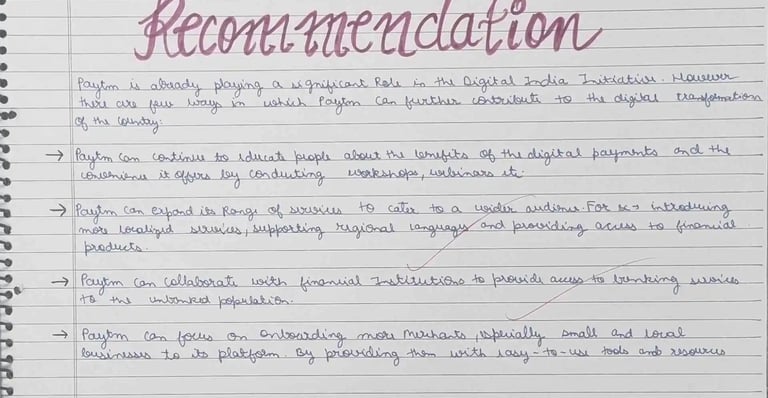 Recommendation
Paytm is already playing a significant Role in the Digital India Initiative. However
there are few ways in which Paytm can further contribute to the digital transformation
of the country:
→ Paytm can continue to educate people about the benefits of the digital payments and the
convenience it offers by conducting workshops, webinars etc.
→ Paytm can expand its Range of services to cater to a wider audience. For ex → introducing
more localized services, supporting regional languages and providing access to financial
products.
→ Paytm can collaborate with financial Institutions to provide access to banking services
to the unbanked population.
→ Paytm can focus on onboarding more merchants, especially small and local
businesses to its platform. By providing them with easy-to-use tools and resources